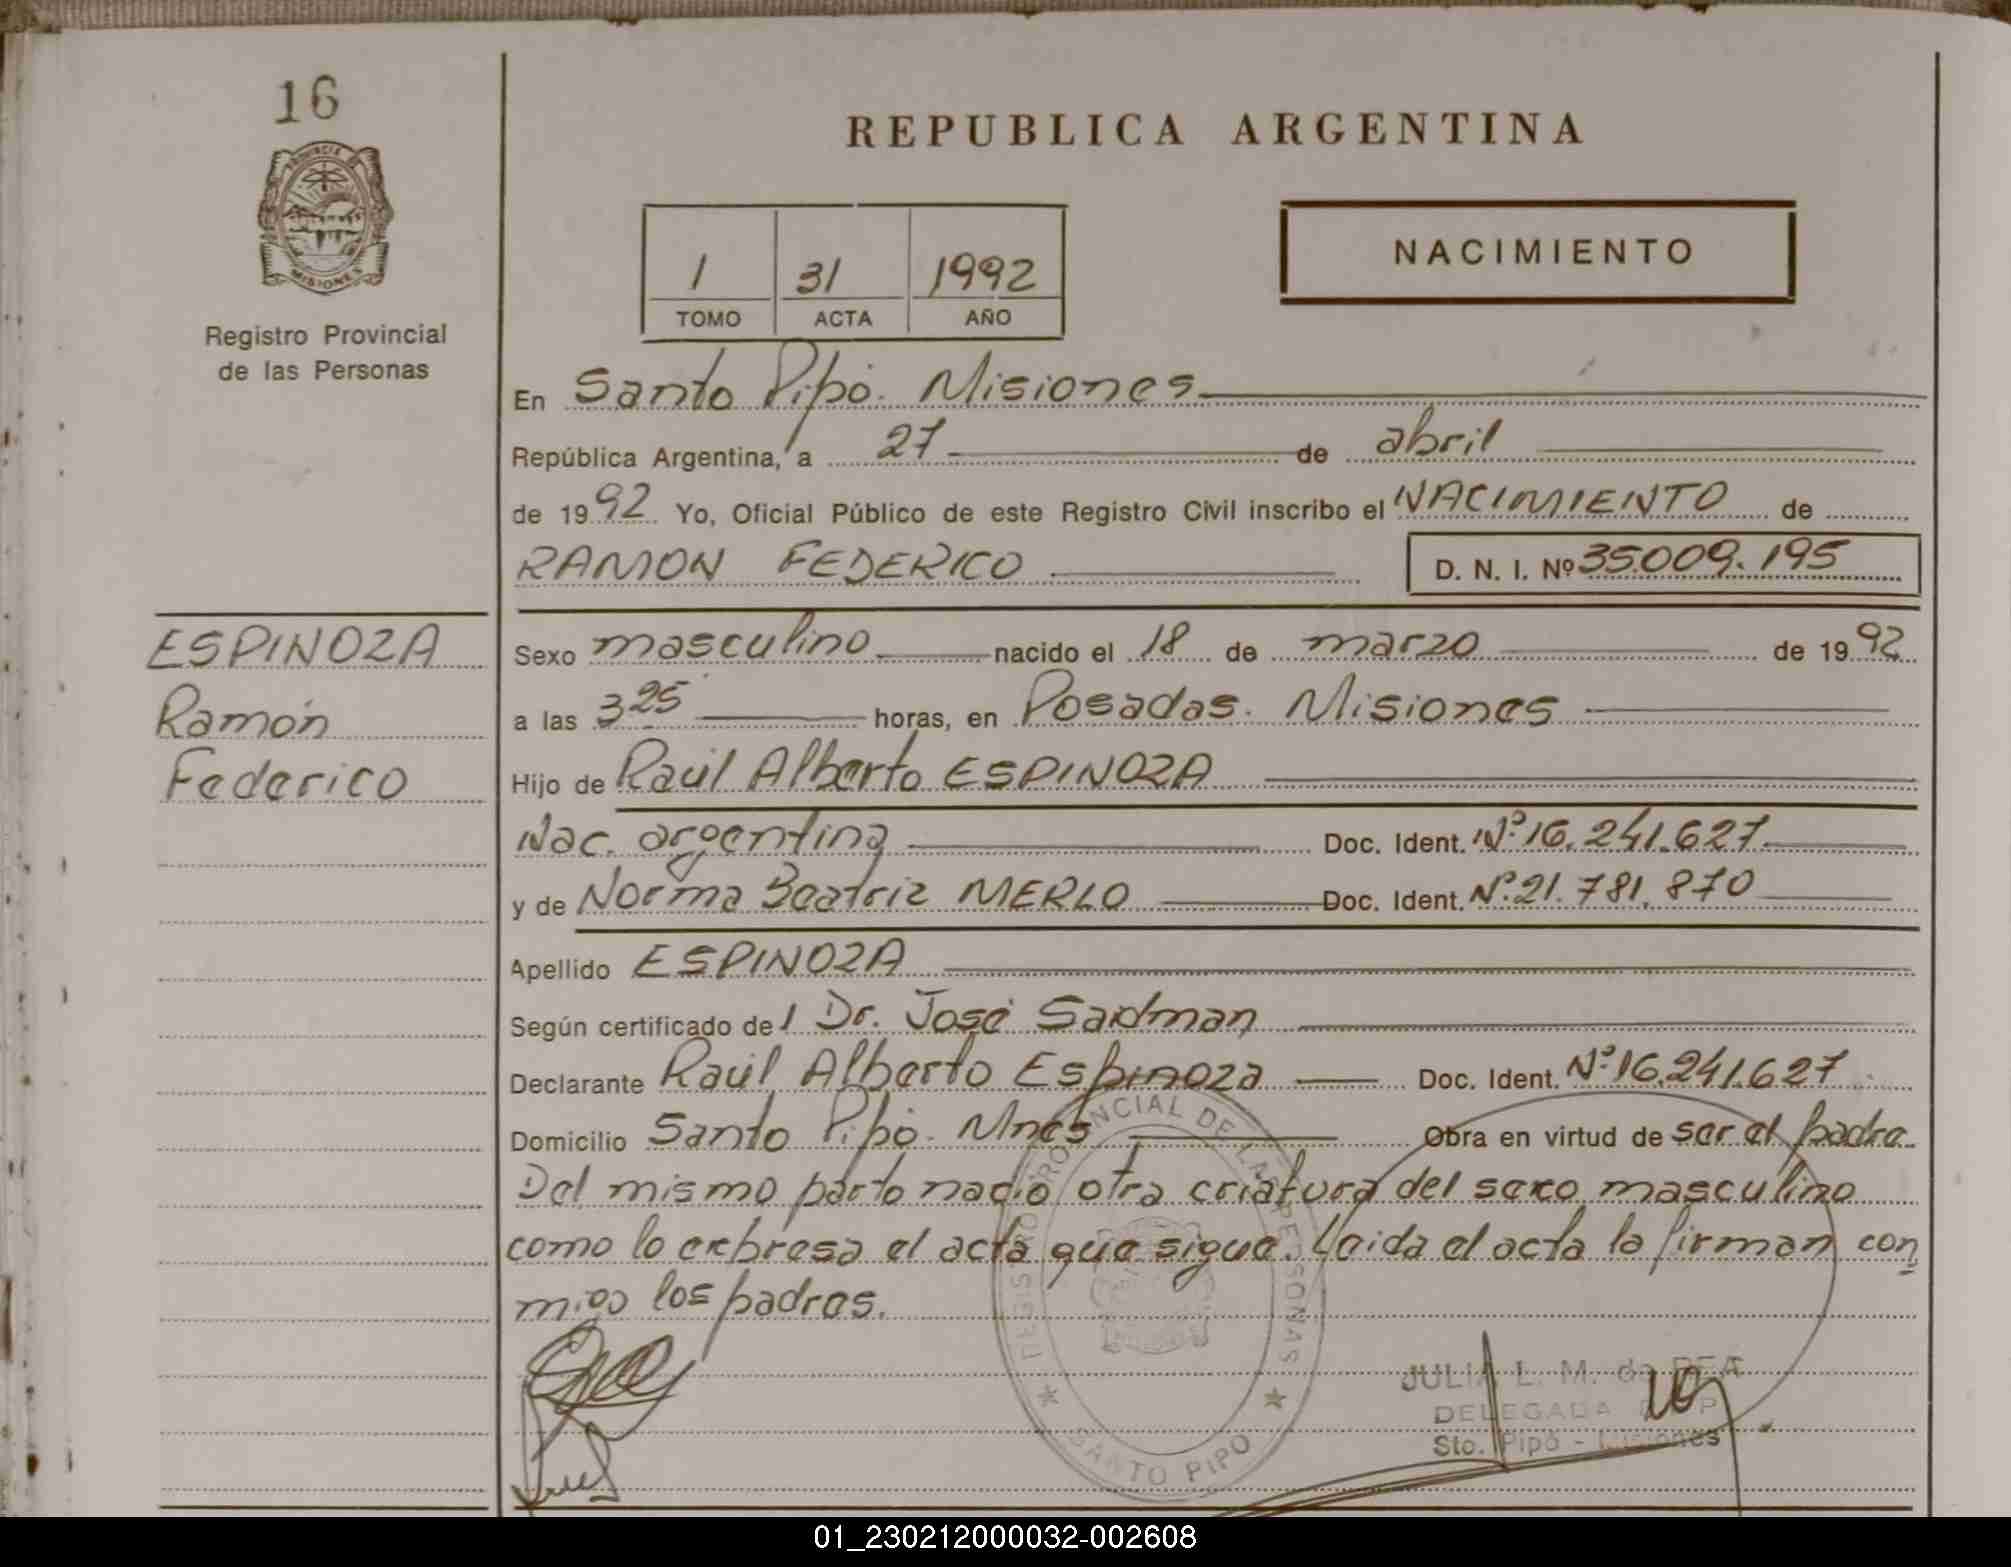 16
PROVINCIA DE
MISIONES
Registro Provincial
de las Personas
REPUBLICA ARGENTINA
1 31 1992
TOMO ACTA AÑO
NACIMIENTO
En Santo Pipó. Misiones
República Argentina, a 27 de abril
de 1992 Yo, Oficial Público de este Registro Civil inscribo el NACIMIENTO de
RAMON FEDERICO D. N. I. Nº 35.009.195
ESPINOZA
Ramón
Federico
Sexo masculino nacido el 18 de marzo de 1992
a las 3 25 horas, en Posadas. Misiones
Hijo de Raúl Alberto ESPINOZA
Nac. argentina Doc. Ident. Nº 16.241.627
y de Norma Beatriz MERLO Doc. Ident. Nº 21.781.870
Apellido ESPINOZA
Según certificado del Dr. José Saidman
Declarante Raúl Alberto Espinoza Doc. Ident. Nº 16.241.627
Domicilio Santo Pipó. Mnes Obra en virtud de ser el padre
Del mismo parto nació otra criatura del sexo masculino
como lo expresa el acta que sigue. Leida el acta la firman con
migo los padres.
REGISTRO PROVINCIAL DE LAS PERSONAS
SANTO PIPO
JULIA L. M. de
DELEGADA
Sto. Pipó - Misiones
01_230212000032-002608